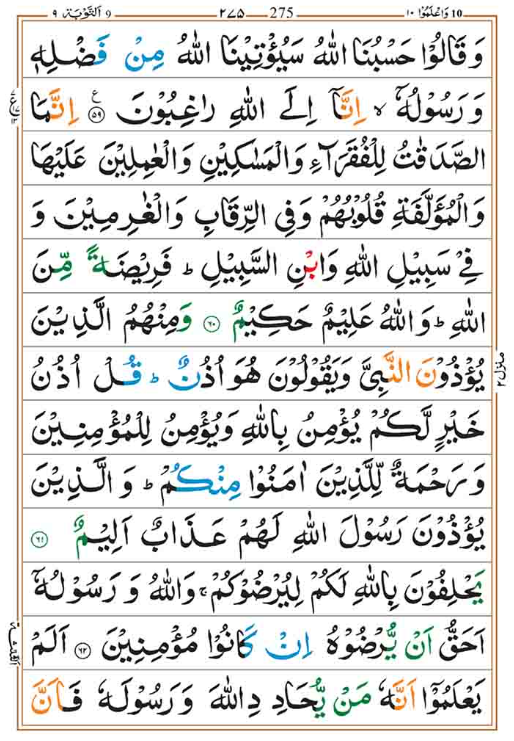 10 وَاعْلَمُوْٓا ۱۰ 275 ۲۷۵ 9 اَلتَّوْبَة ۹
وَ قَالُوْا حَسْبُنَا اللّٰهُ سَيُؤْتِيْنَا اللّٰهُ مِنْ فَضْلِهٖ
وَ رَسُوْلُهٗۤ ۙ اِنَّاۤ اِلَى اللّٰهِ رٰغِبُوْنَ ۵۹ ع اِنَّمَا
الصَّدَقٰتُ لِلْفُقَرَآءِ وَالْمَسٰكِيْنِ وَالْعٰمِلِيْنَ عَلَيْهَا
وَالْمُؤَلَّفَةِ قُلُوْبُهُمْ وَفِي الرِّقَابِ وَالْغٰرِمِيْنَ وَ
فِيْ سَبِيْلِ اللّٰهِ وَابْنِ السَّبِيْلِ ؕ فَرِيْضَةً مِّنَ
اللّٰهِ ؕ وَاللّٰهُ عَلِيْمٌ حَكِيْمٌ ۶۰ وَمِنْهُمُ الَّذِيْنَ
يُؤْذُوْنَ النَّبِيَّ وَيَقُوْلُوْنَ هُوَ اُذُنٌ ؕ قُلْ اُذُنُ
خَيْرٍ لَّكُمْ يُؤْمِنُ بِاللّٰهِ وَيُؤْمِنُ لِلْمُؤْمِنِيْنَ
وَ رَحْمَةٌ لِّلَّذِيْنَ اٰمَنُوْا مِنْكُمْ ؕ وَ الَّذِيْنَ
يُؤْذُوْنَ رَسُوْلَ اللّٰهِ لَهُمْ عَذَابٌ اَلِيْمٌ ۶۱
يَحْلِفُوْنَ بِاللّٰهِ لَكُمْ لِيُرْضُوْكُمْ ۚ وَاللّٰهُ وَ رَسُوْلُهٗۤ
اَحَقُّ اَنْ يُّرْضُوْهُ اِنْ كَانُوْا مُؤْمِنِيْنَ ۶۲ اَلَمْ
يَعْلَمُوْۤا اَنَّهٗ مَنْ يُّحَادِدِ اللّٰهَ وَ رَسُوْلَهٗ فَاَنَّ
منزل ۲